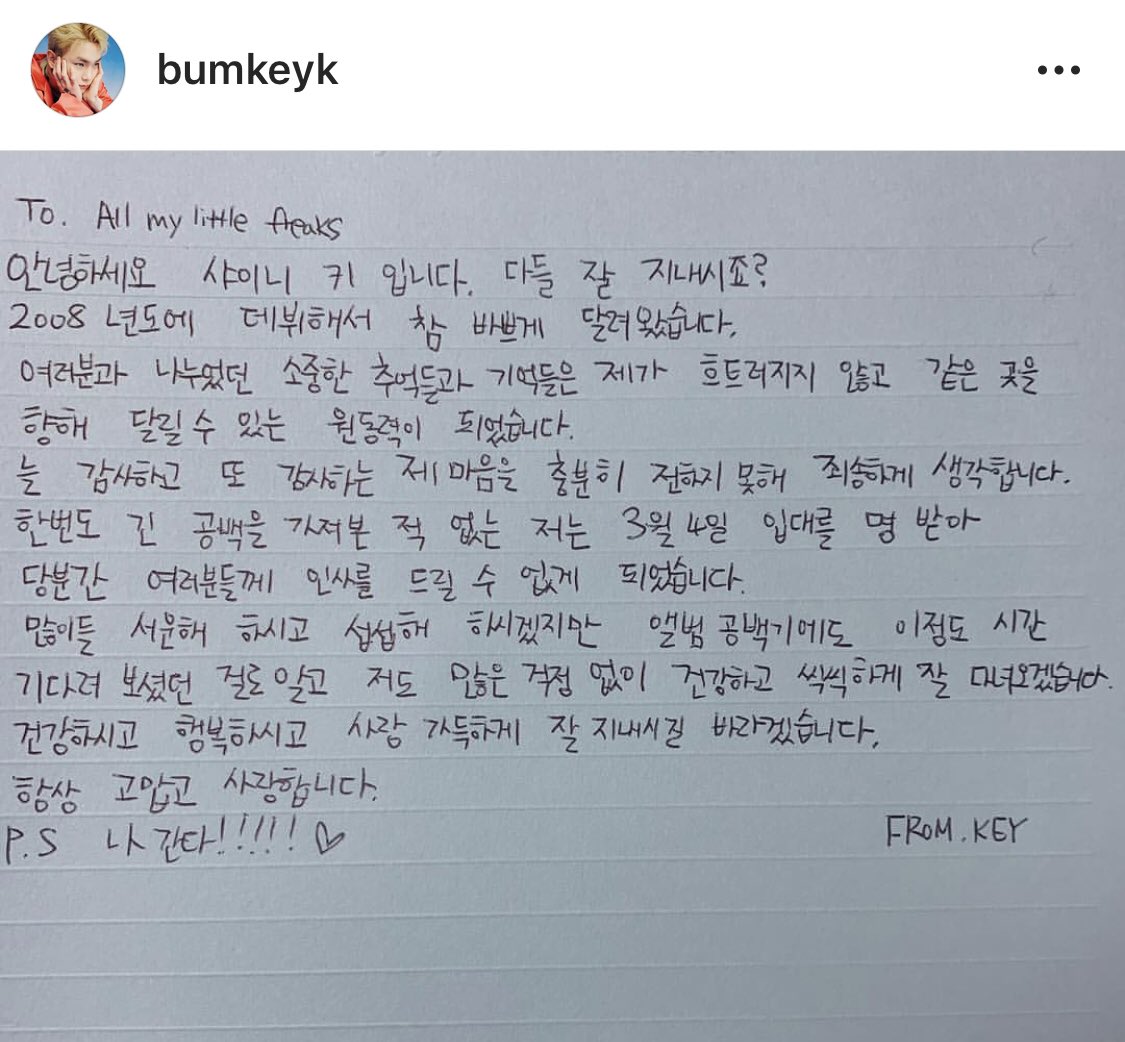 bumkeyk
To. All my little freaks
안녕하세요 샤이니 키 입니다. 다들 잘 지내시죠?
2008 년도에 데뷔해서 참 바쁘게 달려왔습니다.
여러분과 나누었던 소중한 추억들과 기억들은 제가 흐트러지지 않고 같은 곳을
향해 달릴 수 있는 원동력이 되었습니다.
늘 감사하고 또 감사하는 제 마음을 충분히 전하지 못해 죄송하게 생각합니다.
한번도 긴 공백을 가져본 적 없는 저는 3월 4일 입대를 명 받아
당분간 여러분들께 인사를 드릴 수 없게 되었습니다.
많이들 서운해 하시고 섭섭해 하시겠지만 앨범 공백기에도 이정도 시간
기다려 보셨던 걸로 알고 저도 많은 걱정 없이 건강하고 씩씩하게 잘 다녀오겠습니다.
건강하시고 행복하시고 사랑 가득하게 잘 지내시길 바라겠습니다.
항상 고맙고 사랑합니다.
P.S 나 간다!!!!!! ♡ FROM.KEY